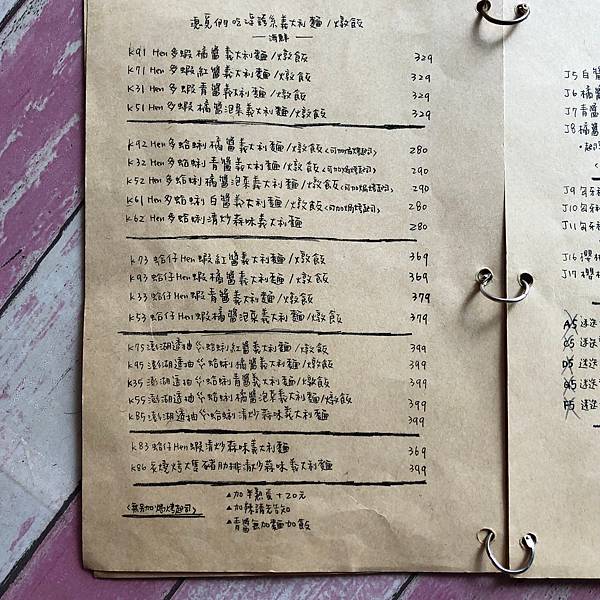 義大利麵/燉飯
海鮮
K91 Hen多蝦橘醬義大利麵/燉飯 329
K71 Hen多蝦紅醬義大利麵/燉飯 329
K31 Hen多蝦青醬義大利麵/燉飯 329
K51 Hen多蝦橘醬泡菜義大利麵/燉飯 329
K92 Hen多蛤蜊橘醬義大利麵/燉飯<可加焗烤起司> 280
K32 Hen多蛤蜊青醬義大利麵/燉飯<可加焗烤起司> 290
K52 Hen多蛤蜊橘醬泡菜義大利麵/燉飯<可加焗烤起司> 290
K61 Hen多蛤蜊白醬義大利麵/燉飯<可加焗烤起司> 280
K62 Hen多蛤蜊清炒蒜味義大利麵 280
K73 蛤仔Hen蝦紅醬義大利麵/燉飯 369
K93 蛤仔Hen蝦橘醬義大利麵/燉飯 369
K33 蛤仔Hen蝦青醬義大利麵/燉飯 379
K53 蛤仔Hen蝦橘醬泡菜義大利麵/燉飯 379
K75 澎湖透抽&蛤蜊紅醬義大利麵/燉飯 399
K95 澎湖透抽&蛤蜊橘醬義大利麵/燉飯 399
K35 澎湖透抽&蛤蜊青醬義大利麵/燉飯 399
K55 澎湖透抽&蛤蜊橘醬泡菜義大利麵/燉飯 399
K85 澎湖透抽&蛤蜊清炒蒜味義大利麵 399
K83 蛤仔Hen蝦清炒蒜味義大利麵 369
K86 炙燒烤大隻豬肋排清炒蒜味義大利麵 399
▲加半熟蛋+20元
<無另加焗烤起司> ▲加辣請先告知
▲青醬無加麵加飯
J5 白醬
J6 橘醬
J7 青醬
J8 橘醬
J9
J10
J11
J16 櫻
J17 櫻